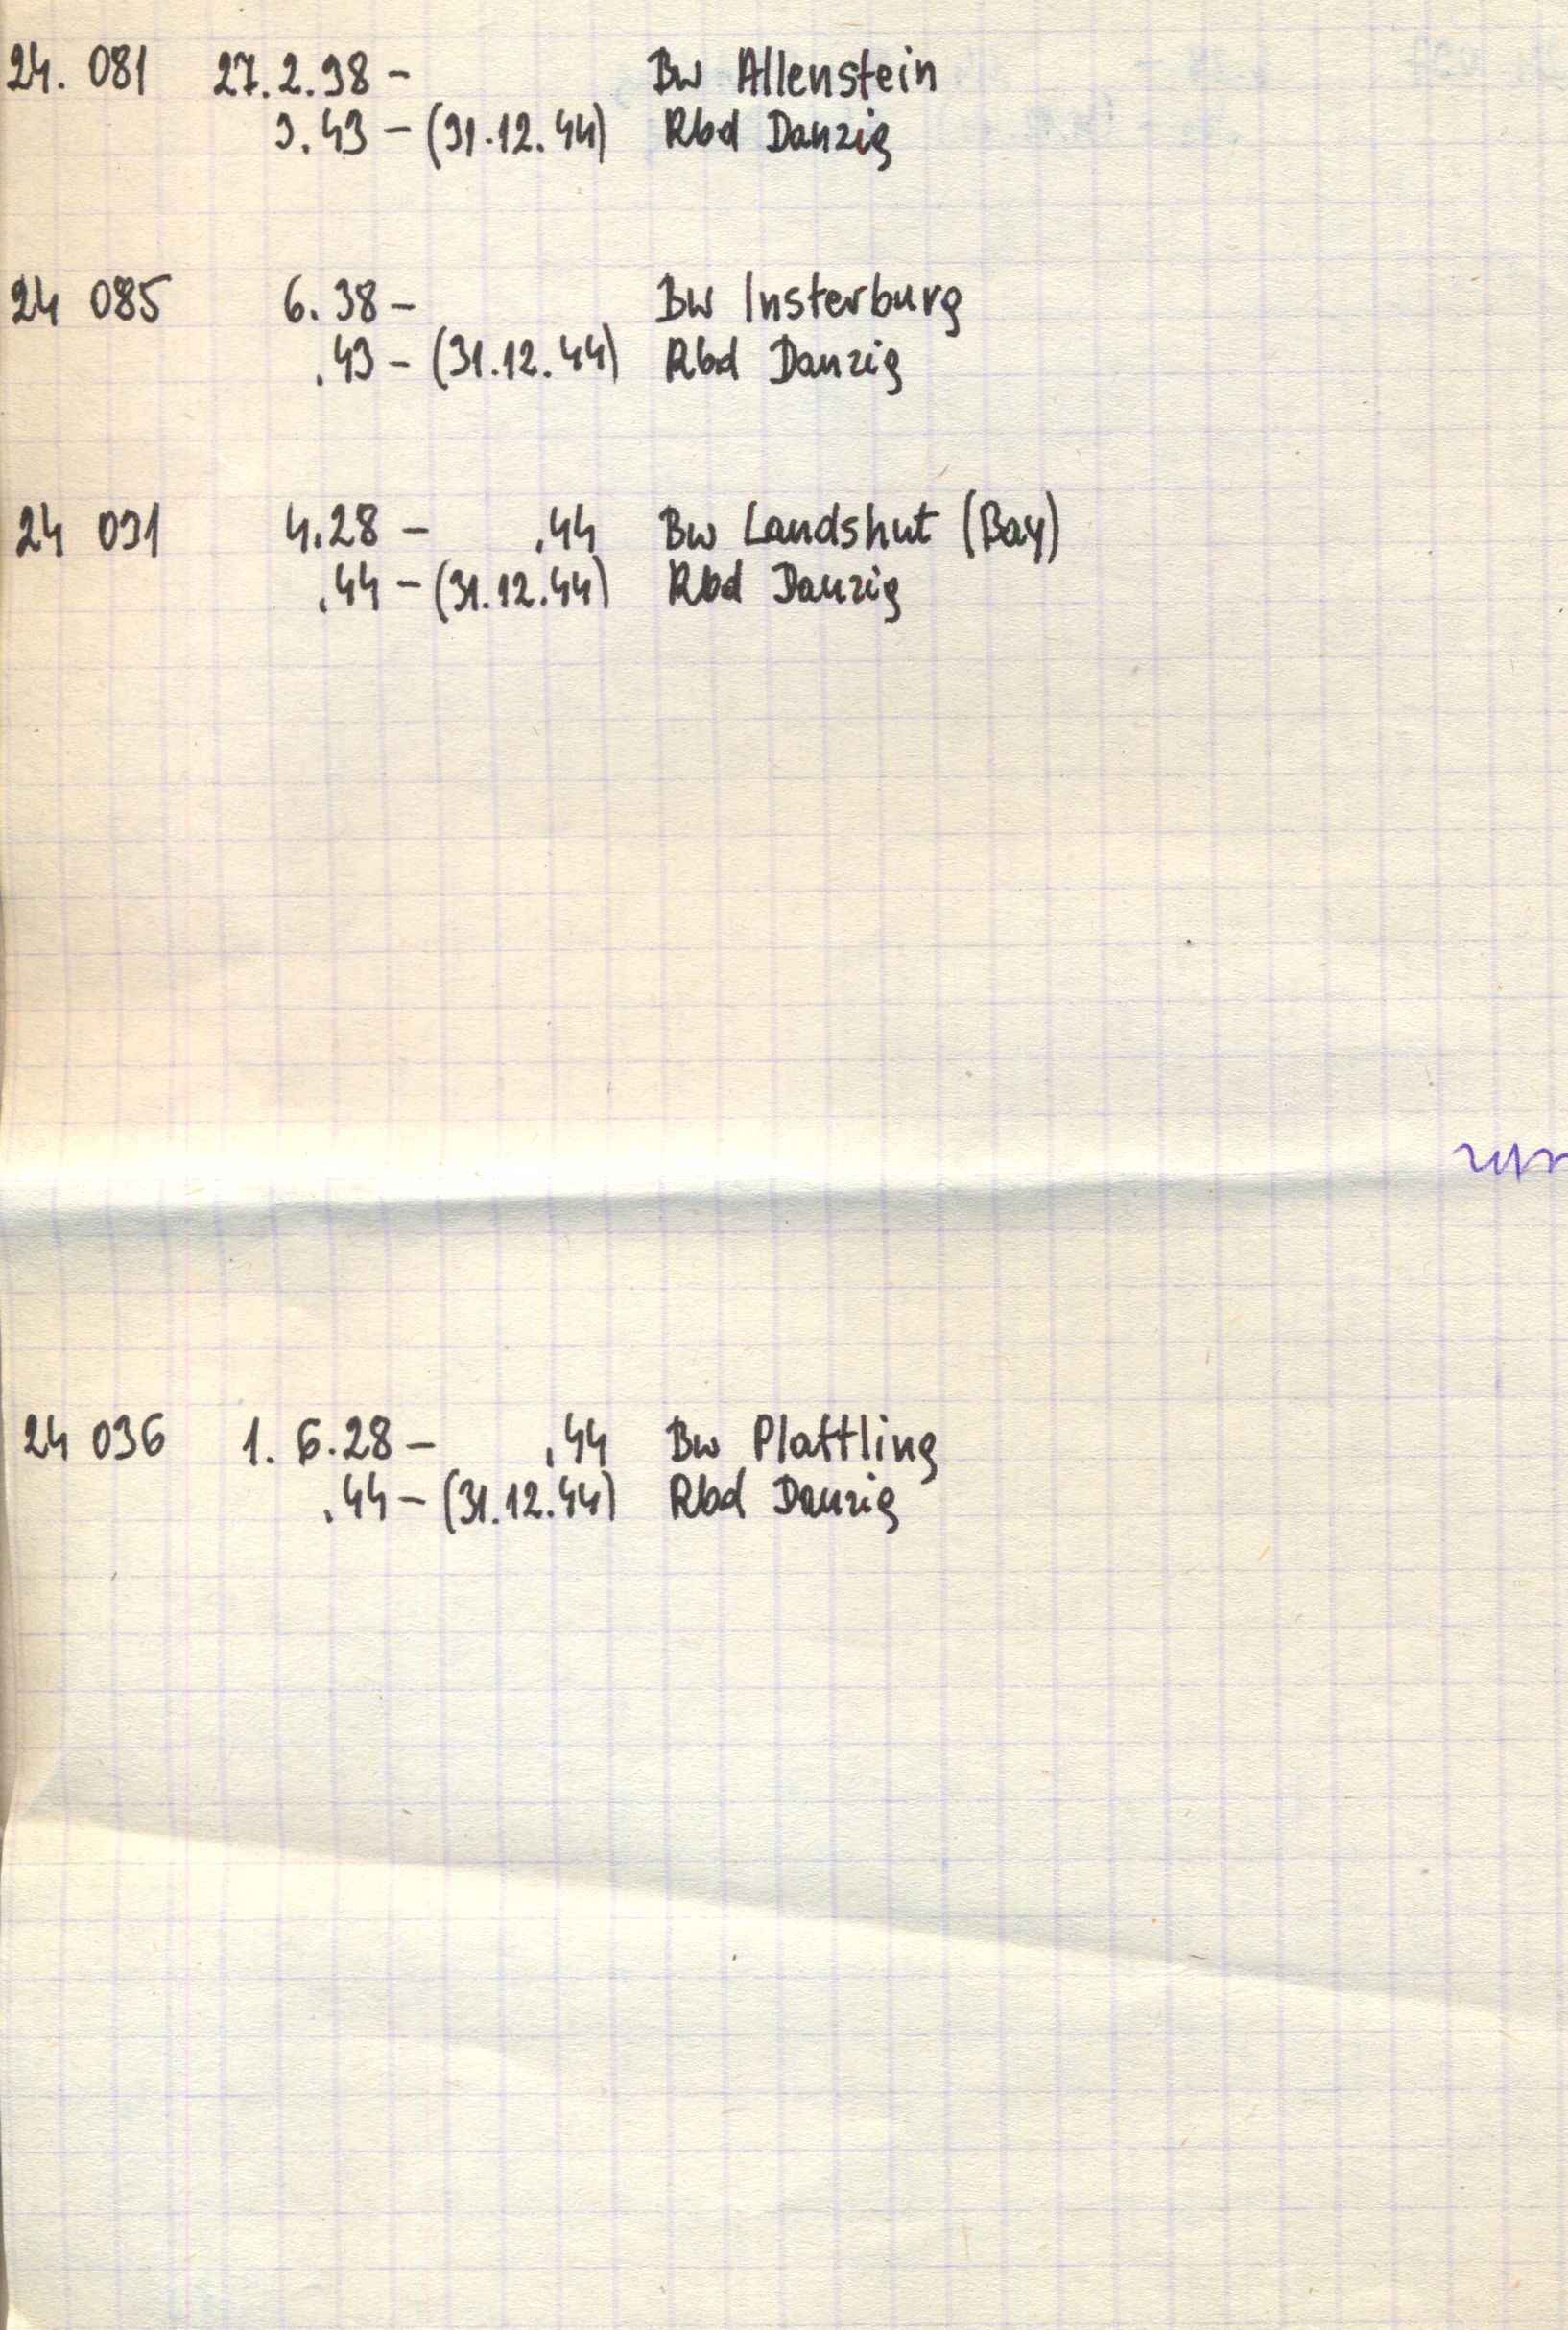 24. 081 27.2.38 - Bw Allenstein
3.43 - (31.12.44) Rbd Danzig
24 085 6.38 - Bw Insterburg
.43 - (31.12.44) Rbd Danzig
24 031 4.28 - .44 Bw Landshut (Bay)
.44 - (31.12.44) Rbd Danzig
24 036 1. 6.28 - .44 Bw Plattling
.44 - (31.12.44) Rbd Danzig